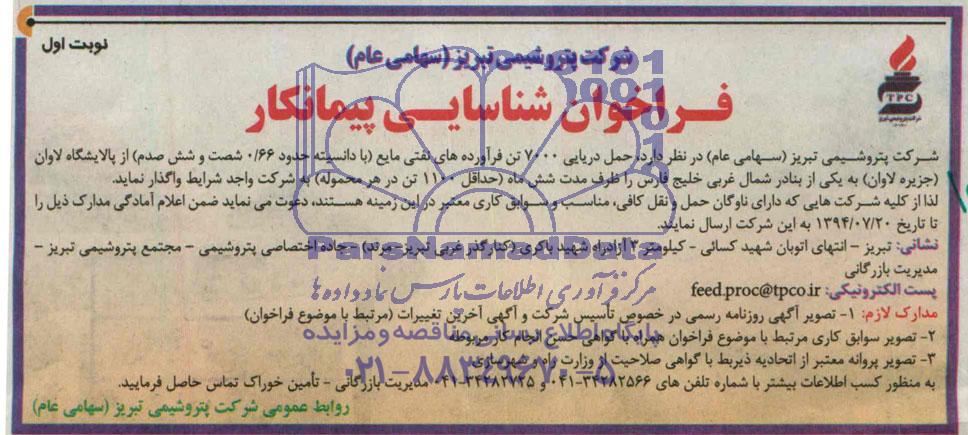 نوبت اول
شرکت پتروشیمی تبریز (سهامی عام)
TPC
شرکت پتروشیمی تبریز
فراخوان شناسایی پیمانکار
شرکت پتروشیمی تبریز (سهامی عام) در نظر دارد، حمل دریایی ۷۰۰۰ تن فرآورده های نفتی مایع (با دانسیته حدود ۰/۶۶ شصت و شش صدم) از پالایشگاه لاوان
(جزیره لاوان) به یکی از بنادر شمال غربی خلیج فارس را ظرف مدت شش ماه (حداقل ۱۱۰۰ تن در هر محموله) به شرکت واجد شرایط واگذار نماید.
لذا از کلیه شرکت هایی که دارای ناوگان حمل و نقل کافی، مناسب و سوابق کاری معتبر در این زمینه هستند، دعوت می نماید ضمن اعلام آمادگی مدارک ذیل را
تا تاریخ ۱۳۹۴/۰۷/۲۰ به این شرکت ارسال نمایند.
نشانی: تبریز – انتهای اتوبان شهید کسائی – کیلومتر ۳ آزادراه شهید باکری (کنارگذر غربی تبریز- مرند) - جاده اختصاصی پتروشیمی – مجتمع پتروشیمی تبریز –
مدیریت بازرگانی
پست الکترونیکی: feed.proc@tpco.ir
مدارک لازم: ۱- تصویر آگهی روزنامه رسمی در خصوص تأسیس شرکت و آگهی آخرین تغییرات (مرتبط با موضوع فراخوان)
۲- تصویر سوابق کاری مرتبط با موضوع فراخوان همراه با گواهی حسن انجام کار مربوطه
۳- تصویر پروانه معتبر از اتحادیه ذیربط یا گواهی صلاحیت از وزارت راه و شهرسازی
به منظور کسب اطلاعات بیشتر با شماره تلفن های ۳۴۲۸۲۵۶۶-۰۴۱ و ۳۴۲۸۲۷۴۵-۰۴۱ مدیریت بازرگانی - تأمین خوراک تماس حاصل فرمایید.
روابط عمومی شرکت پتروشیمی تبریز (سهامی عام)
ParsNamadData
مرکز فرآوری اطلاعات پارس نماد داده ها
پایگاه اطلاع رسانی مناقصه و مزایده
۰۲۱-۸۸۳۴۹۶۷۰-۵